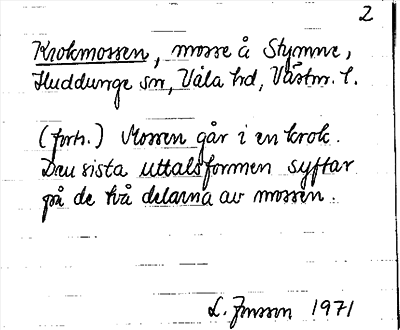 2
Krokmossen, mosse å Stymne,
Huddunge sn, Våla hd, Västm. l.
(forts.) Mossen går i en krok.
Den sista uttalsformen syftar
på de två delarna av mossen.
L. Jonsson 1971